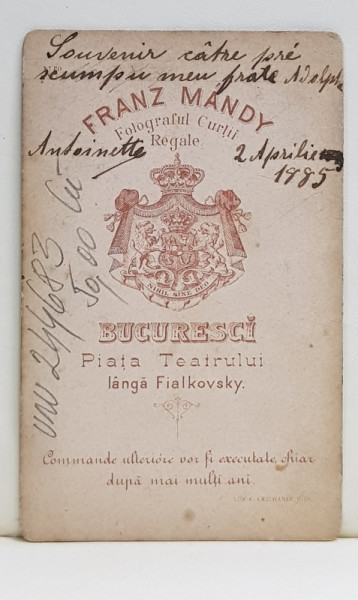 Souvenir către pré
scumpu meu frate Adolph
FRANZ MANDY
Fotograful Curtii
Regale.
Antoinette
2 Aprilie
1885
NIHIL SINE DEO
BUCURESCĬ
Piața Teatrului
lângă Fialkovsky.
Commande ulterióre vor fi executate, chiar
după mai mulți ani.
244683